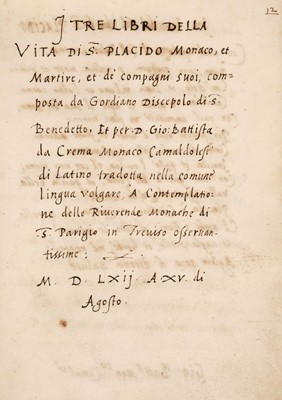 12
I TRE LIBRI DELLA
VITA DI S. PLACIDO Monaco, et
Martire, et de compagni suoi, com=
posta da Gordiano Discepolo di S.
Benedetto, Et per D. Gio: Battista
da Crema Monaco Camaldolese
di Latino tradotta nella comune
lingua volgare, A Contemplatio=
ne delle Riverende Monache di
S. Parigio in Treviso osservan=
tissime:
M. D. LXij. A XV. di
Agosto.